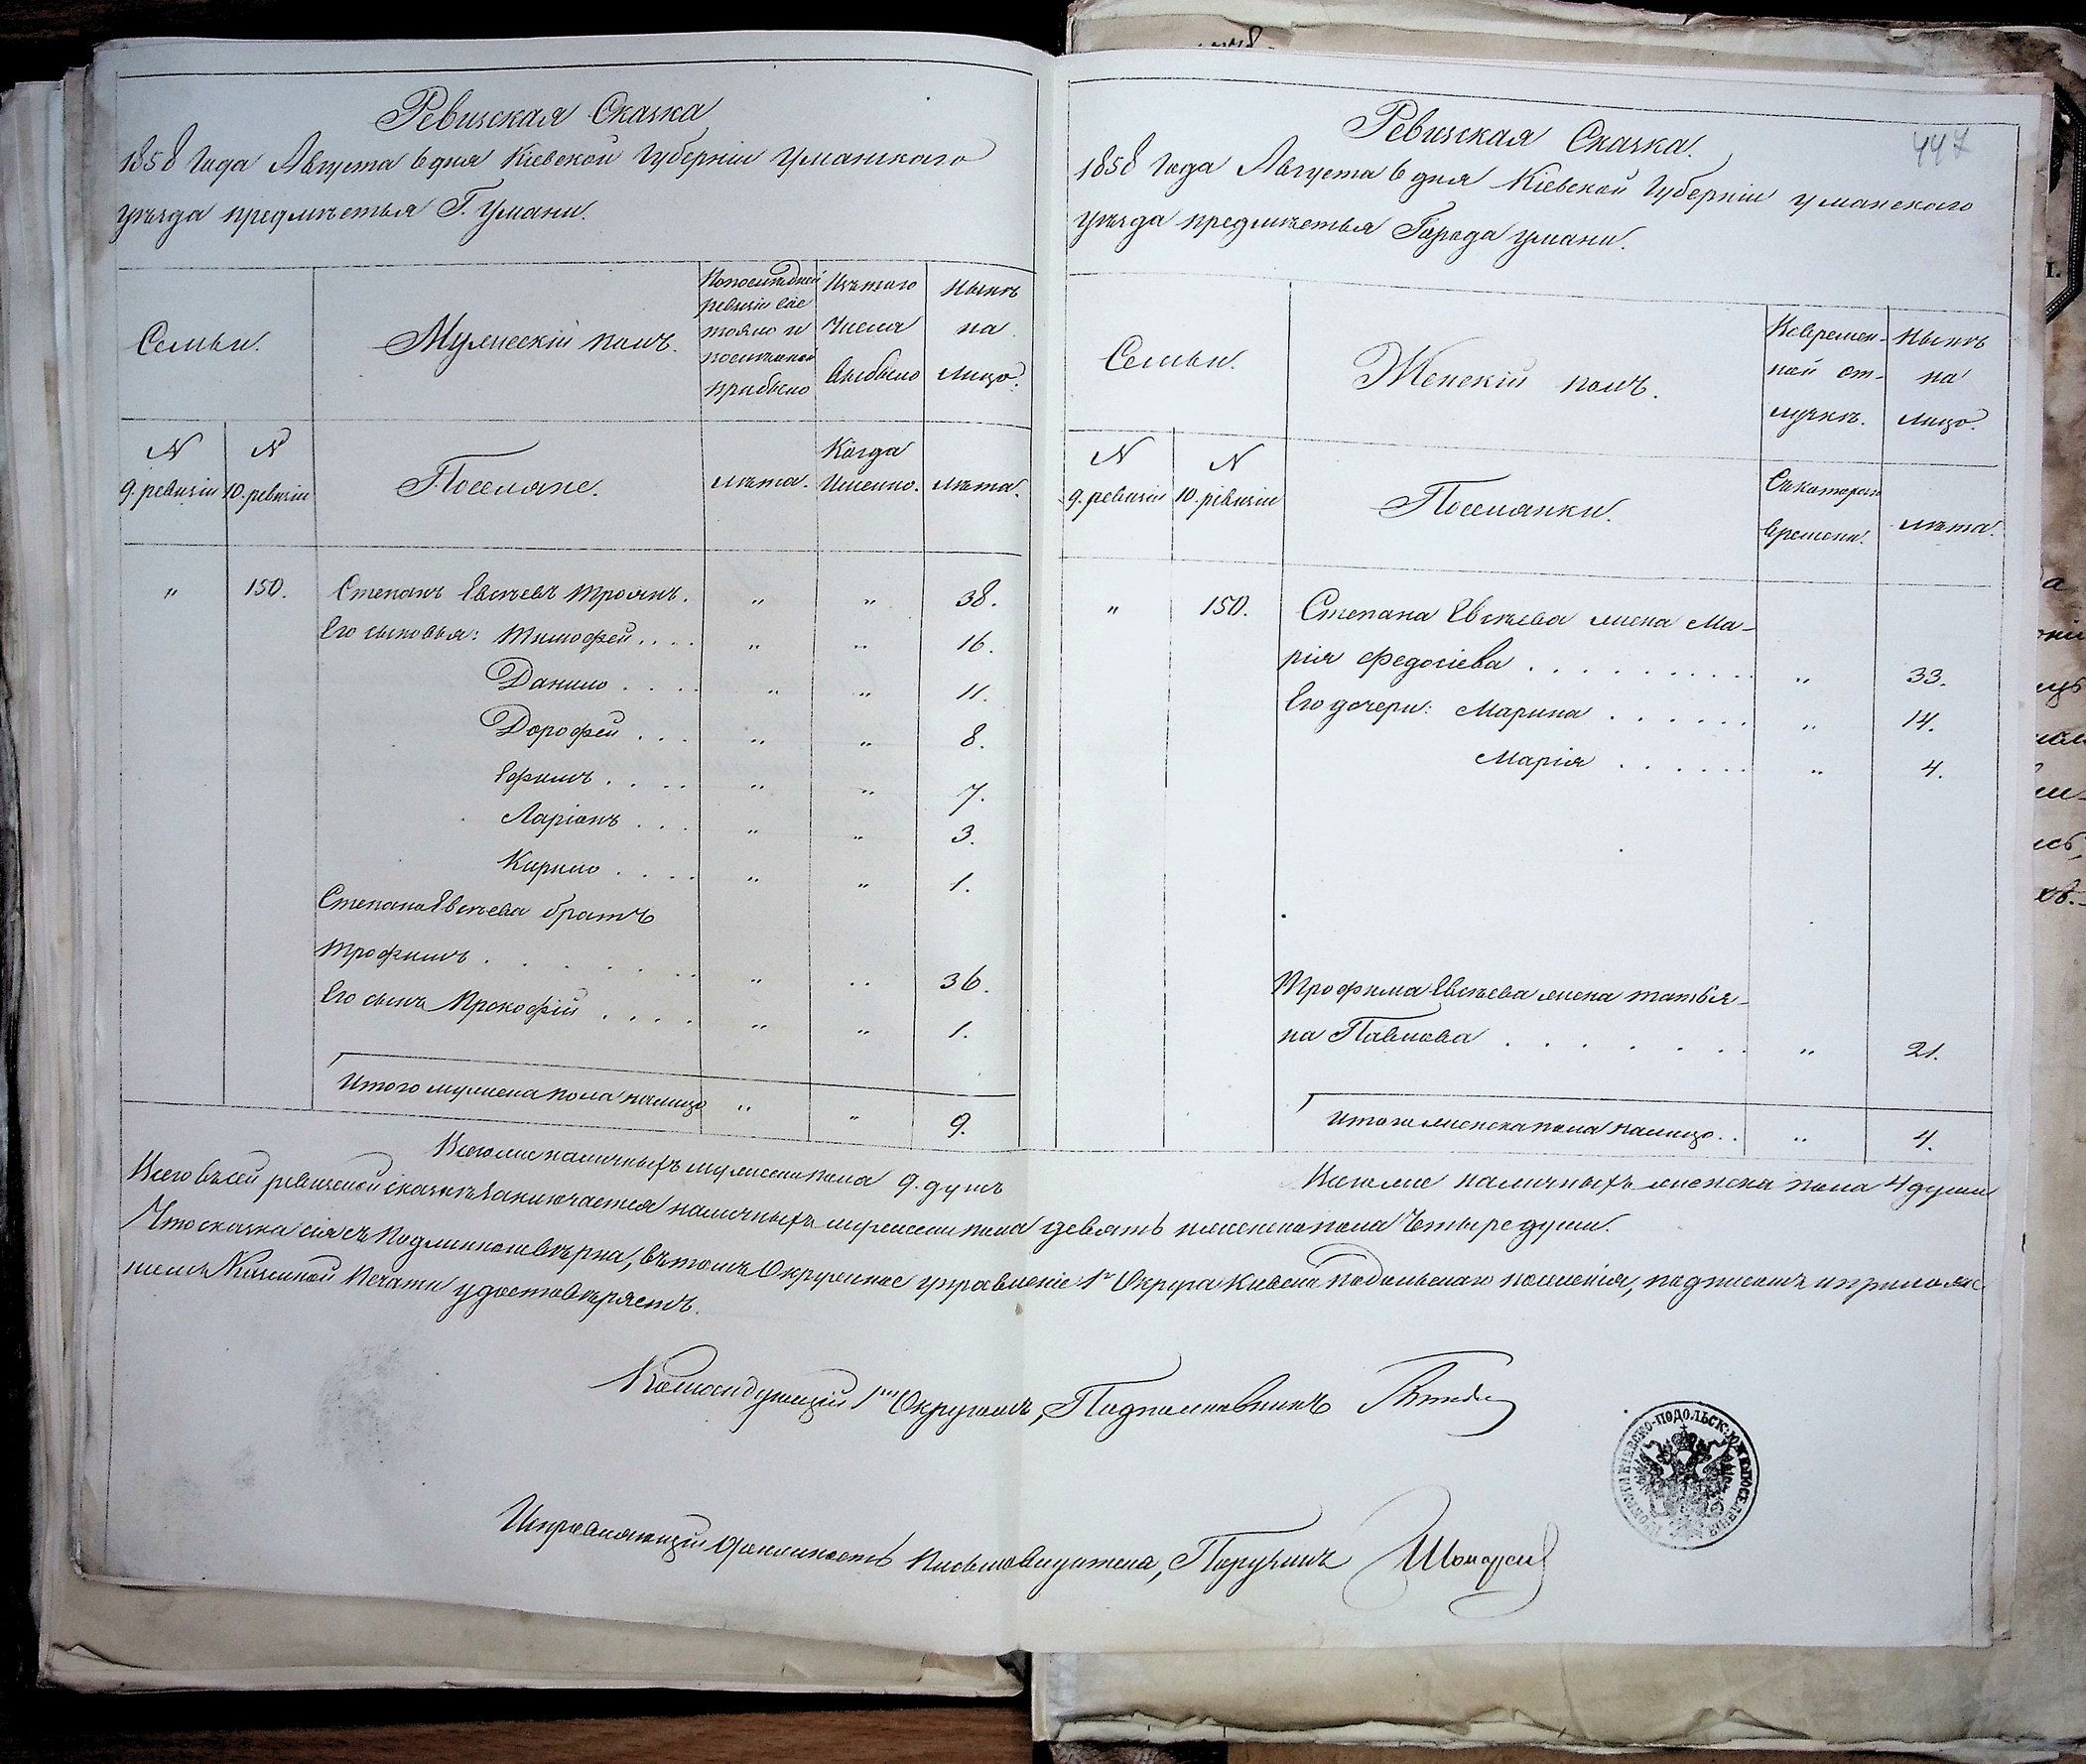 Ревизская Сказка
1858 Года Августа 6 дня Кіевской Губерніи Уманскаго
уѣзда предмѣстья Г. Умани.
Семьи.
Мужескій полъ.
По последней
ревизіи сос
тояло и
после оной
прибыло
Изъ того
числа
выбыло
Нынѣ
на
лицо.
N
9. ревизіи
N
10. ревизіи
Поселяне.
лѣта.
Когда
Именно.
лѣта.
" 150. Степанъ Евсѣевъ Троянъ. " " 38.
Его сыновья: Тимофей.... " " 16.
Данило .... " " 11.
Дорофей ... " " 8.
Ефимъ .... " " 7.
Ларіонъ ... " " 3.
Кирило .... " " 1.
Степана Евсѣева братъ
Трофимъ . . . . . . " " 36.
Его сынъ Прокофій .... " " 1.
Итого мужеска пола налицо " " 9.
Всего же наличныхъ мужеска пола 9. душъ
Ревизская Сказка.
447
1858 Года Августа 6 дня Кіевской Губерніи Уманскаго
уѣзда предмѣстья Города Умани.
Семьи.
Женскій полъ.
Во времен-
ной от-
лучкѣ.
Нынѣ
на
лицо.
N
9. ревизіи
N
10. ревизіи
Поселянки.
Съ котораго
времени.
лѣта.
" 150. Степана Евсѣева жена Ма-
рія Федосіева . . . . . . . . . " 33.
Его дочери: Марина ...... " 14.
Марія ...... " 4.
Трофима Евсѣева жена Татья-
на Павлова . . . . . . . " 21.
Итого женска пола налицо.. " 4.
Всего же наличныхъ женска пола 4 души
Всего въ сей ревизской сказкѣ заключается наличныхъ мужеска пола девять женска пола четыре души.
Что сказка сія съ подлинною вѣрна, въ томъ Окружное управленіе 1го Округа Кіевско Подольскаго поселенія, подписомъ и прилож
ніемъ Казенной Печати удостовѣряетъ.
Командующій 1мъ Округомъ, Подполковникъ
Исправляющій должность Письмоводителя, Поручикъ
КІЕВСКО-ПОДОЛЬСК: ЮЖ: ПОСЕЛЕНІЯ